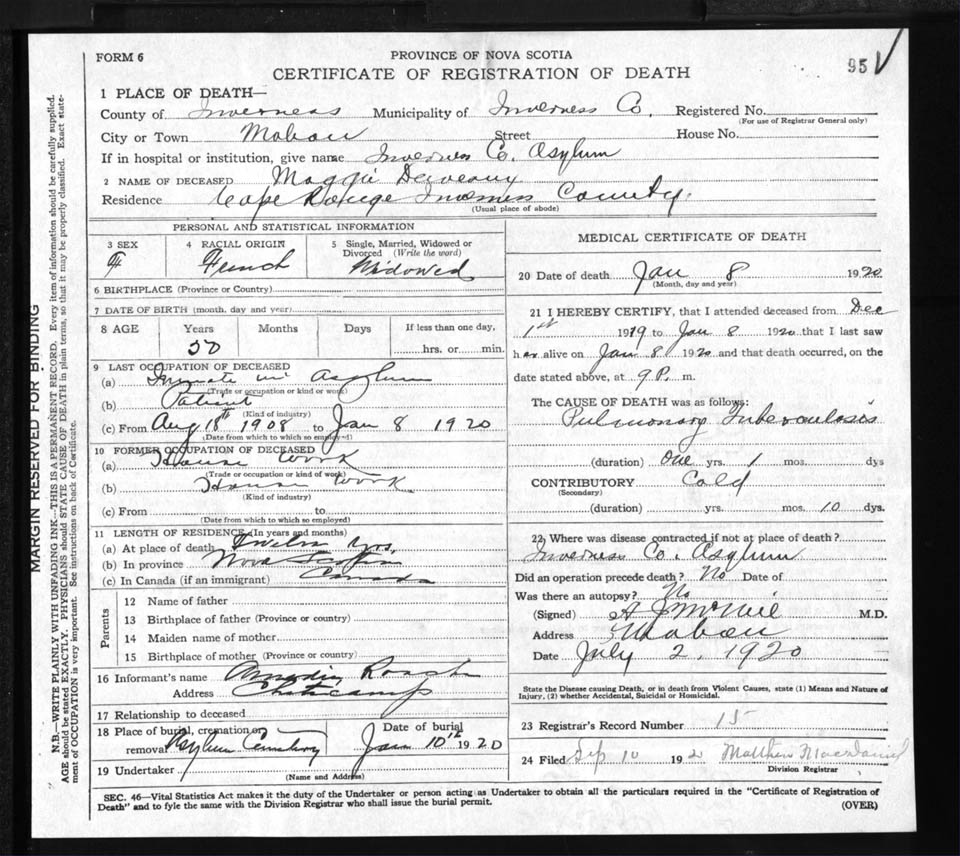 FORM 6
PROVINCE OF NOVA SCOTIA
95
CERTIFICATE OF REGISTRATION OF DEATH
1 PLACE OF DEATH—
County of Inverness Municipality of Inverness Co. Registered No.
(For use of Registrar General only)
City or Town Mabou Street House No.
If in hospital or institution, give name Inverness Co. Asylum
2 NAME OF DECEASED Maggie Deveaux
Residence Cape Rouge Inverness County.
(Usual place of abode)
PERSONAL AND STATISTICAL INFORMATION
3 SEX 4 RACIAL ORIGIN 5 Single, Married, Widowed or Divorced (Write the word)
F French Widowed
6 BIRTHPLACE (Province or Country)
7 DATE OF BIRTH (month, day and year)
8 AGE Years Months Days If less than one day,
50 hrs. or min.
9 LAST OCCUPATION OF DECEASED
(a) Inmate in Asylum
(Trade or occupation or kind or work)
(b) Patient
(Kind of industry)
(c) From Aug 18th 1908 to Jan 8 1920
(Date from which to which so employed)
10 FORMER OCCUPATION OF DECEASED
(a) House Work
(Trade or occupation or kind of work)
(b) House Work
(Kind of industry)
(c) From to
(Date from which to which so employed)
11 LENGTH OF RESIDENCE (In years and months)
(a) At place of death Twelve Yrs.
(b) In province Nova Scotia
(c) In Canada (if an immigrant) Canada
Parents
12 Name of father
13 Birthplace of father (Province or country)
14 Maiden name of mother
15 Birthplace of mother (Province or country)
16 Informant's name
Address Cheticamp
17 Relationship to deceased
18 Place of burial, cremation or removal Asylum Cemetery Date of burial Jan 10th 1920
19 Undertaker
(Name and Address)
MEDICAL CERTIFICATE OF DEATH
20 Date of death Jan 8 1920
(Month, day and year)
21 I HEREBY CERTIFY, that I attended deceased from Dec
1st 1919 to Jan 8 1920 that I last saw
her alive on Jan 8 1920 and that death occurred, on the
date stated above, at 9 P. m.
The CAUSE OF DEATH was as follows:
Pulmonary Tuberculosis
(duration) One yrs. 1 mos. dys
CONTRIBUTORY Cold
(Secondary)
(duration) yrs. mos. 10 dys.
22 Where was disease contracted if not at place of death?
Inverness Co. Asylum
Did an operation precede death? No Date of
Was there an autopsy? No
(Signed) A J McNeil M.D.
Address Mabou
Date July 2, 1920
State the Disease causing Death, or in death from Violent Causes, state (1) Means and Nature of
Injury, (2) whether Accidental, Suicidal or Homicidal.
23 Registrar's Record Number 15
24 Filed Sep 10 192 Matthew
Division Registrar
SEC. 46—Vital Statistics Act makes it the duty of the Undertaker or person acting as Undertaker to obtain all the particulars required in the "Certificate of Registration of
Death" and to fyle the same with the Division Registrar who shall issue the burial permit. (OVER)
MARGIN RESERVED FOR BINDING
N.B.—WRITE PLAINLY WITH UNFADING INK—THIS IS A PERMANENT RECORD. Every item of information should be carefully supplied.
AGE should be stated EXACTLY. PHYSICIANS should STATE CAUSE OF DEATH in plain terms, so that it may be properly classified. Exact state-
ment of OCCUPATION is very important. See instructions on back of Certificate.